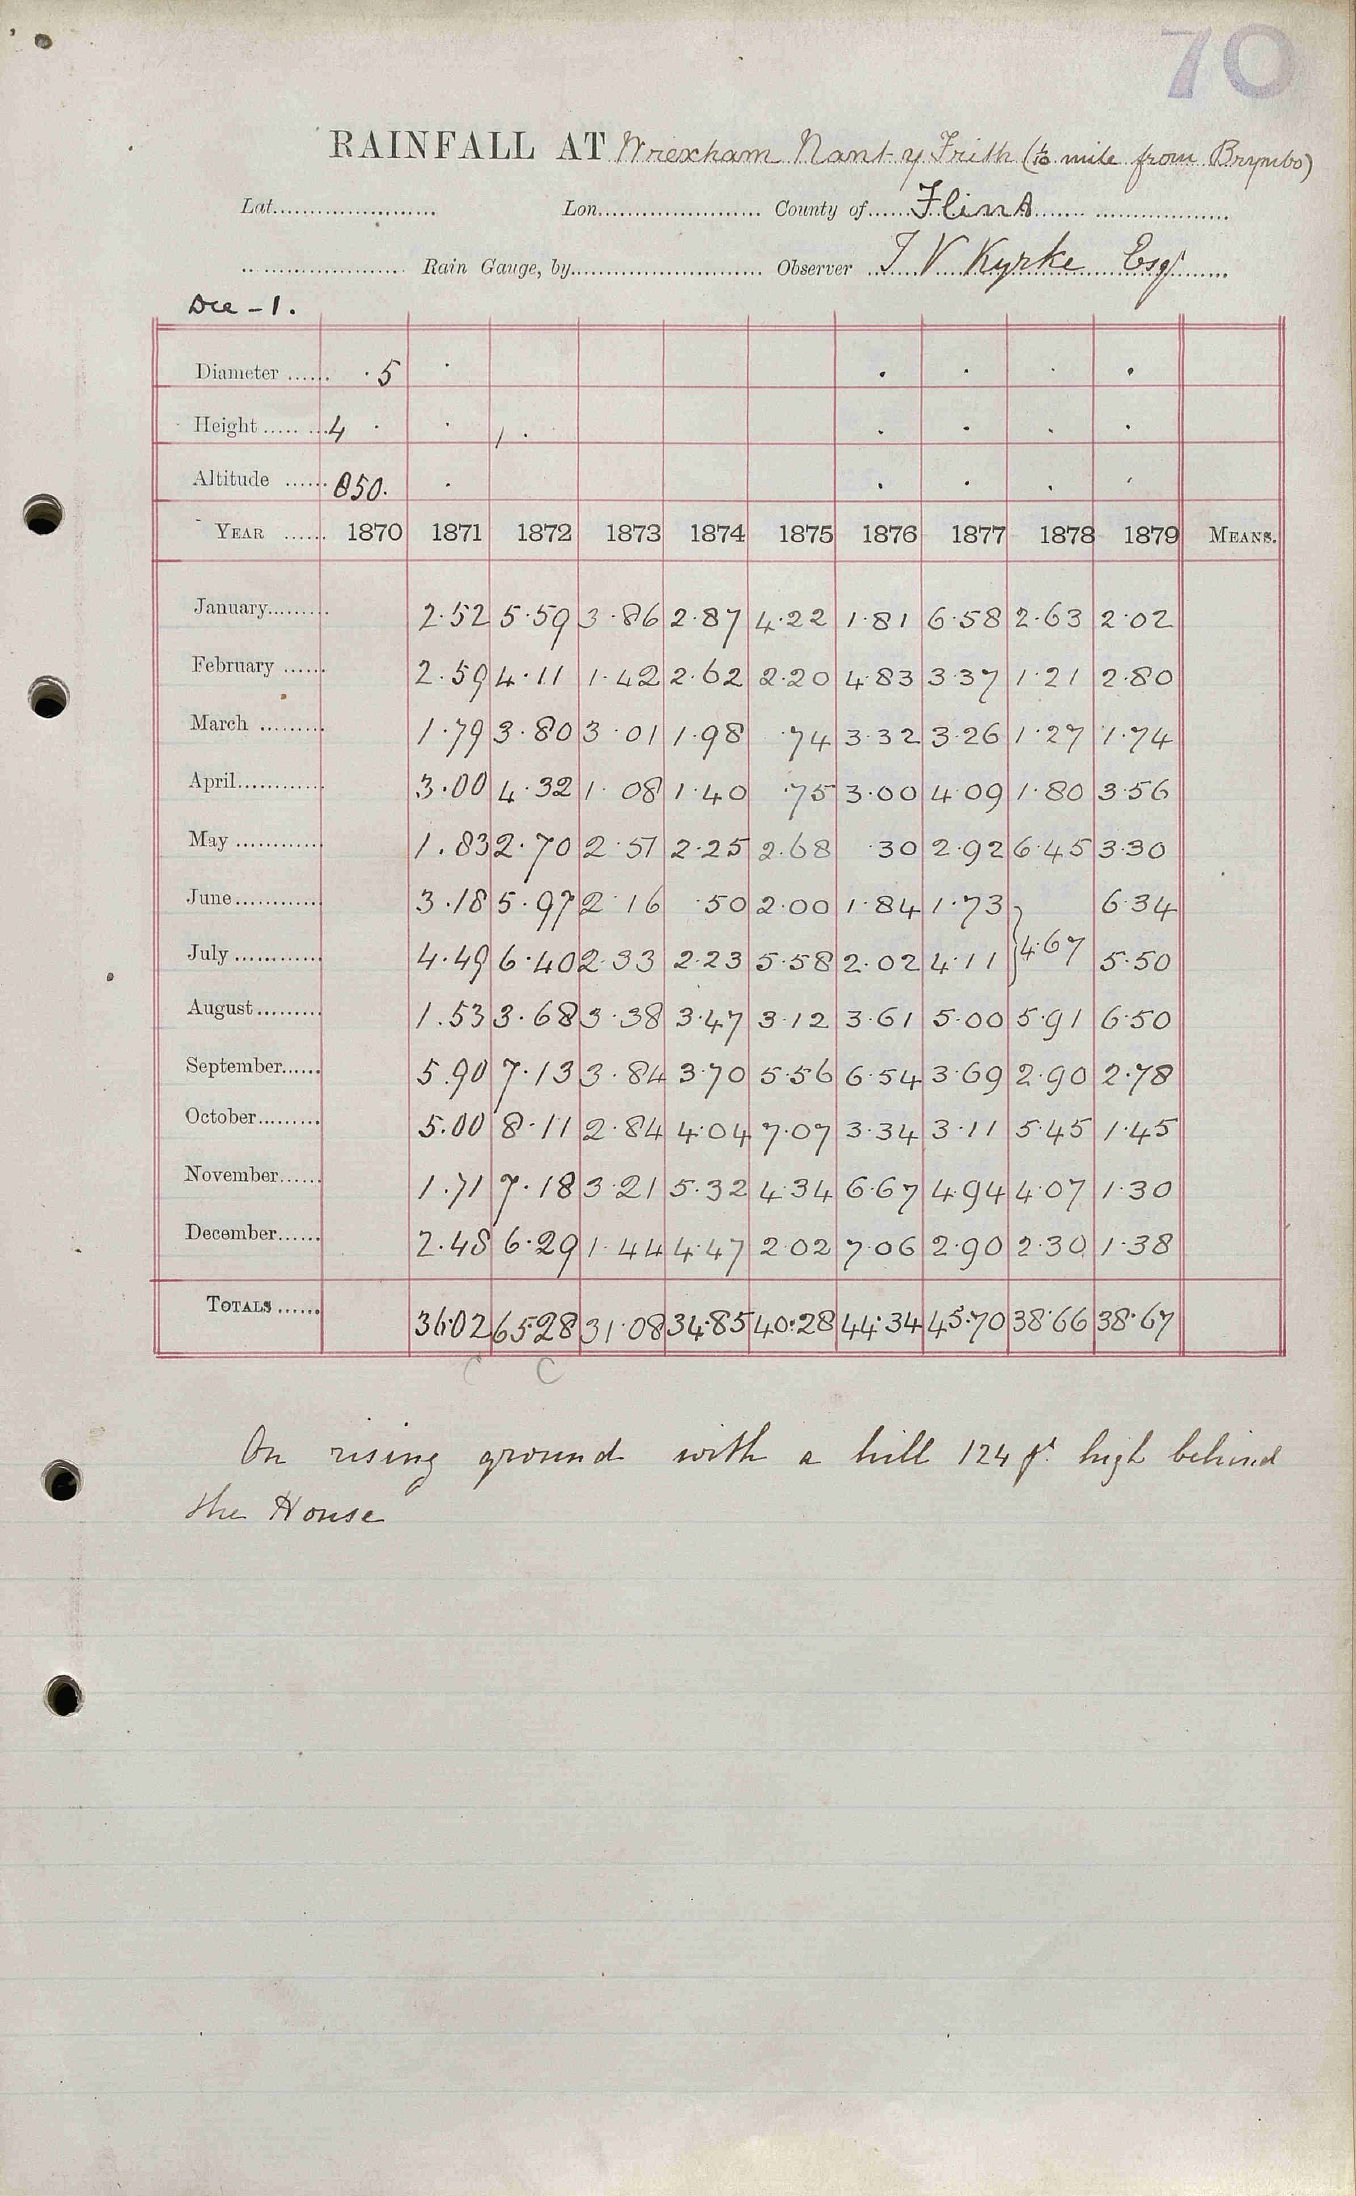 70
RAINFALL AT Wrexham Nant-y Frith (1/10 mile from Brymbo)
Lat. Lon. County of Flint
Rain Gauge, by Observer T V Kyrke Esqr
Dee - 1.
Diameter ·5
Height 4
Altitude 850.
YEAR 1870 1871 1872 1873 1874 1875 1876 1877 1878 1879 MEANS.
January 2.52 5.59 3.86 2.87 4.22 1.81 6.58 2.63 2.02
February 2.59 4.11 1.42 2.62 2.20 4.83 3.37 1.21 2.80
March 1.79 3.80 3.01 1.98 .74 3.32 3.26 1.27 1.74
April 3.00 4.32 1.08 1.40 .75 3.00 4.09 1.80 3.56
May 1.83 2.70 2.51 2.25 2.68 .30 2.92 6.45 3.30
June 3.18 5.97 2.16 .50 2.00 1.84 1.73 } 6.34
July 4.49 6.40 2.33 2.23 5.58 2.02 4.11 } 4.67 5.50
August 1.53 3.68 3.38 3.47 3.12 3.61 5.00 5.91 6.50
September 5.90 7.13 3.84 3.70 5.56 6.54 3.69 2.90 2.78
October 5.00 8.11 2.84 4.04 7.07 3.34 3.11 5.45 1.45
November 1.71 7.18 3.21 5.32 4.34 6.67 4.94 4.07 1.30
December 2.48 6.29 1.44 4.47 2.02 7.06 2.90 2.30 1.38
TOTALS 36.02 65.28 31.08 34.85 40.28 44.34 45.70 38.66 38.67
C C
On rising ground with a hill 124 ft high behind
the House